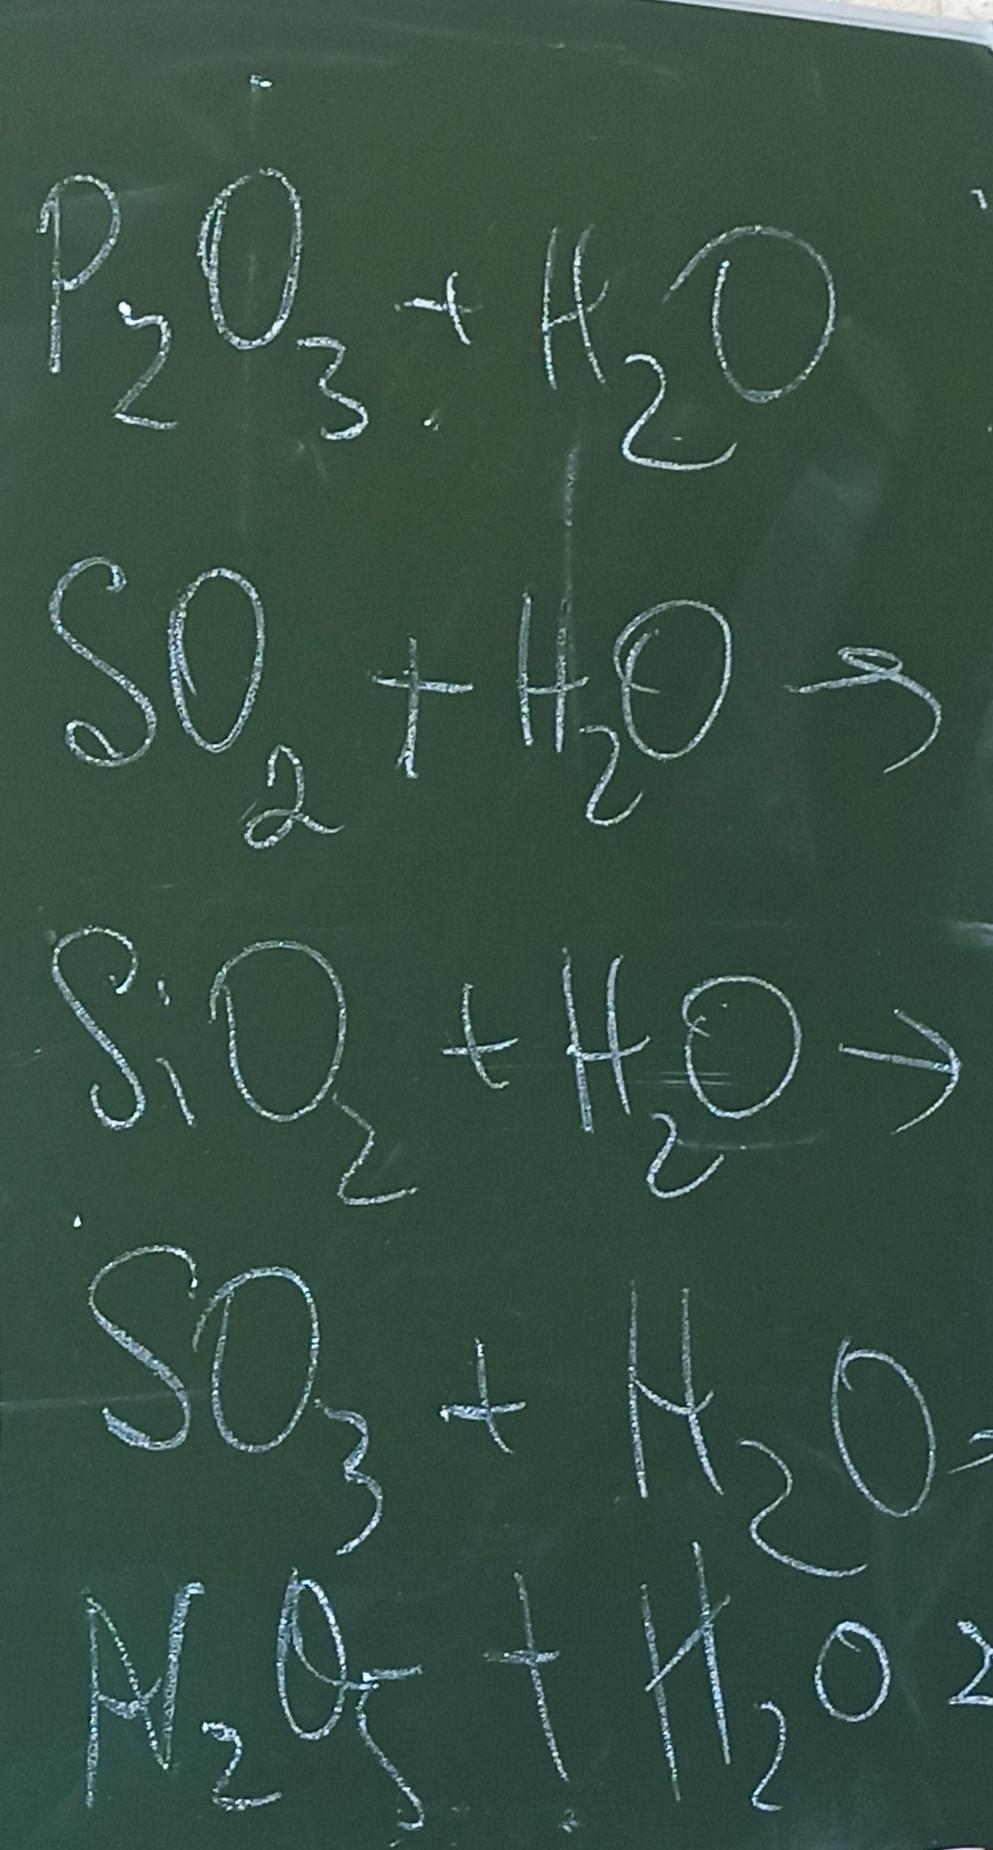 P₂O₃ + H₂O
SO₂ + H₂O →
SiO₂ + H₂O →
SO₃ + H₂O →
N₂O₅ + H₂O →